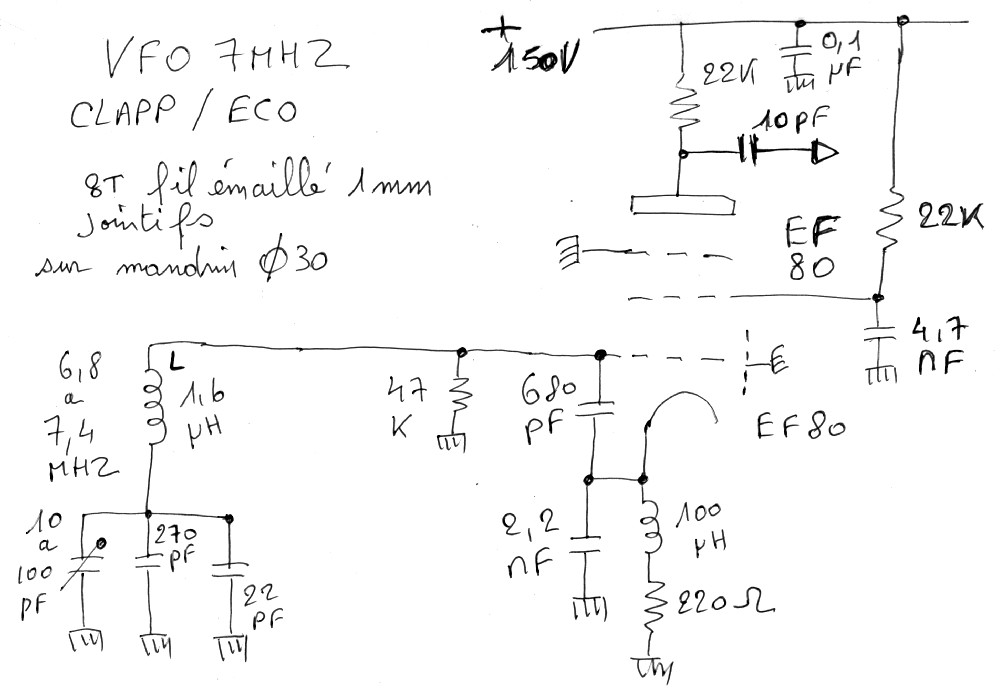 VFO 7MHZ
CLAPP / ECO
8T fil émaillé 1mm
jointifs
sur mandrin ϕ30
+
150V
22K
0,1
µF
10pF
EF
80
22K
4,7
nF
6,8
a
7,4
MHZ
L
1,6
µH
47
K
680
pF
EF80
10
a
100
pF
270
pF
22
pF
2,2
nF
100
µH
220Ω